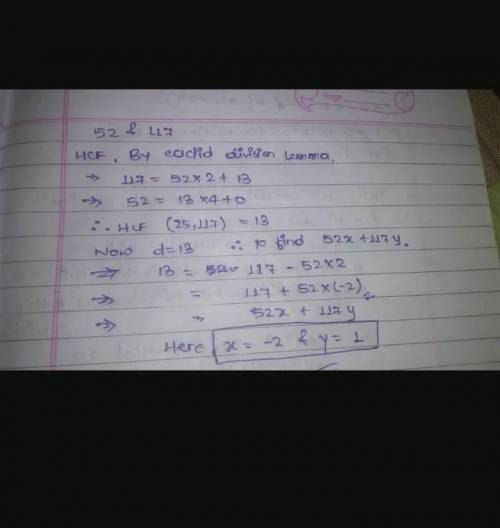 52 & 117
HCF, By euclid division lemma,
→ 117 = 52×2 + 13
→ 52 = 13×4+0
∴ HCF (25,117) = 13
Now d=13 ∴ to find 52x+117y.
⇒ 13 = 117 - 52×2
→ = 117 + 52×(-2)
→ " 52x + 117y
Here x = -2 & y = 1